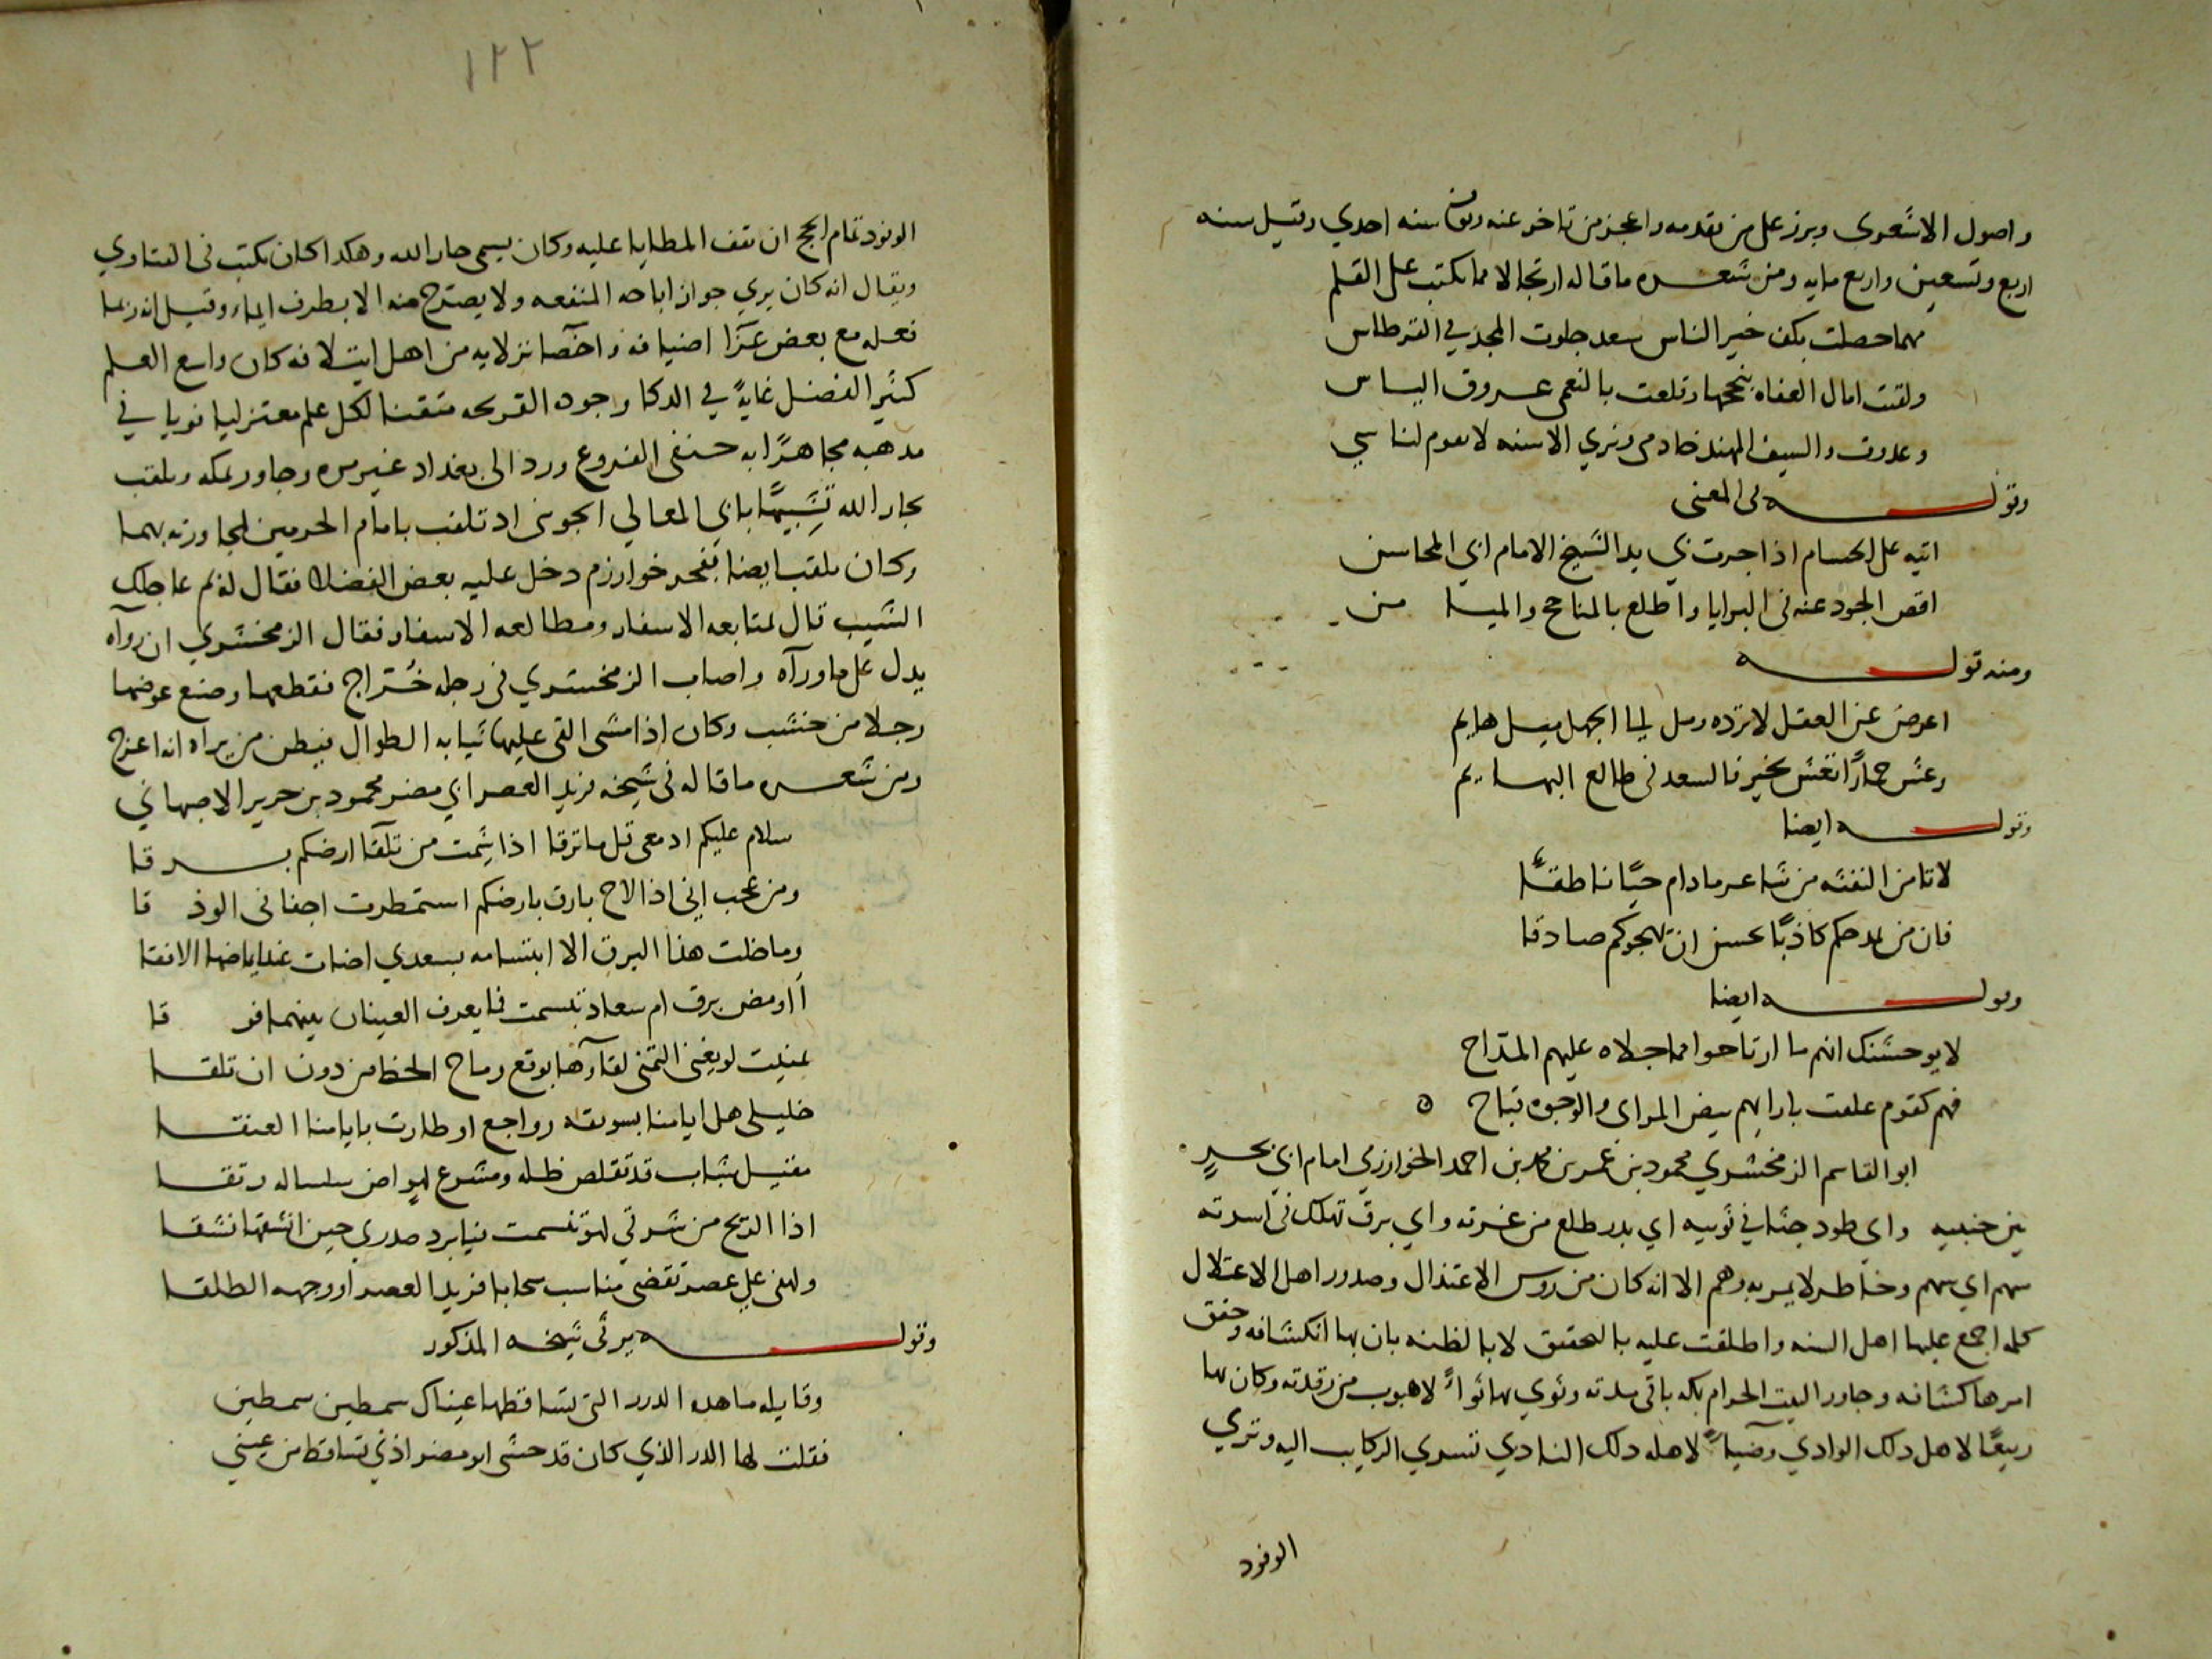 واصول الاشعوى وبرز على من تقدمه واعجز من تاخر عنه وتوفى سنه احدي وقيل سنه
اربع وتسعين واربع مايه ومن شعره ما قاله ارتجالا مما يكتب على القلم
مهما حصلت بكف خير الناس سعد جلوت المجد في القرطاس
ولقت امال العفاه بنجحها وقلعت بالنعمى عروق الياس
وعدوت والسيف المهند خادمى ونري الاسنه لا تقوم لناسي
وقوله فى المعنى
اتيه على الحسام اذا جرت بي يد الشيخ الامام ابي المحاسن
اقص الجود عنه فى البرايا واطلع بالمناجح والميا من
ومنه قوله
اعرض عن العقل لا ترده ومل الى الجهل ميل هايم
وعش حمارًا تعش بخير فالسعد فى طالع البهايم
وقوله ايضا
لا تامن النفثه من شاعر ما دام حيًا ناطقًا
فان من يمدحكم كاذبًا يحسن ان يهجوكم صادقا
وقوله ايضا
لا يوحشنك انهم ما ارتاحوا مما جلاه عليهم المداح
فهم كقوم علقت بارايهم بيض المراى والوجوه قباح ه
ابو القاسم الزمخشري محمود بن عمر بن محمد بن احمد الخوارزمي امام اي بحرٍ
بين جنبيه واى طود جثا في ثوبيه اي بدر طلع من غرته واي برق تهلل فى اسرته
سهم اي سهم وخاطر لا يمر به وهم الا انه كان من روس الاعتزال وصدور اهل الاعتلال
كلمه اجمع عليها اهل السنه واطلقت عليه بالتحقيق لا بالظنه بان بها انكشافه وحقق
امرها كشافه وجاور البيت الحرام بمكه باقى مدته وثوي بها ثواءً لا هبوب من رقدته وكان بها
ربيعًا لاهل ذلك الوادي وضياءً لاهله ذلك النادي تسري الركايب اليه وتري
الوفود
١٢٢
الوفود تمام الحج ان تقف المطايا عليه وكان يسمى جار الله وهكذا كان يكتب فى الفتاوي
ويقال انه كان يري جواز اباحه المنفعه ولا يصرح منه الا بطرف ايماء وقيل انه ربما
فعله مع بعض اضيافه واخصا نزلايه من اهل لانه كان واسع العلم
كثير الفضل غايةً في الذكا وجوده القريحه متقنا لكل علم معتزليا قويا في
مذهبه مجاهرًا به حنفى الفروع ورد الى بغداد غير مره وجاور بمكه وتلقب
بجار الله تشبيهًا بابي المعالي الجوينى اذ تلقب بامام الحرمين لمجاورته بهما
وكان يلقب ايضا بفخر خوارزم دخل عليه بعض الفضلا فقال له لم عاجلك
الشيب قال لمتابعه الاسفار ومطالعه الاسفار فقال الزمخشري ان روآه
يدل على ما ورآه واصاب الزمخشري فى رجله خُراج فقطعها وصنع عوضها
رجلا من خشب وكان اذا مشى القى عليها ثيابه الطوال فيظن من يراه انه اعرج
ومن شعره ما قاله فى شيخه فريد العصر ابي مضر محمود بن جرير الاصبهاني
سلام عليكم ادمعى قل ما ترقا اذا شمت من تلقا ارضكم برقا
ومن عجب اني اذا لاح بارق بارضكم استمطرت اجفانى الودقا
وما خلت هذا البرق الا ابتسامه بسعدي اضات عند ايماضها الافقا
أاومض برق ام سعاد تبسمت فما يعرف العينان بينهما فرقا
تمنيت لو يغنى التمنى لقآءها بوقع رماح الخط من دون ان تلقا
خليلى هل ايامنا بسويقه رواجع او طارت بايامنا العنقا
مقيل شباب قد تقلص ظله ومشرع لهو اض سلساله رتقا
اذا الريح من شرقي لهو تنسمت فيا برد صدري حين انشقها نشقا
ولهفى على عصر تقضى مناسب سحابا فريد العصر او وجهه الطلقا
وقوله يرثى شيخه المذكور
وقايله ما هذه الدرر التى تساقطها عيناك سمطين سمطين
فقلت لها الدر الذي كان قد حشى ابو مضر اذني تساقط من عيني